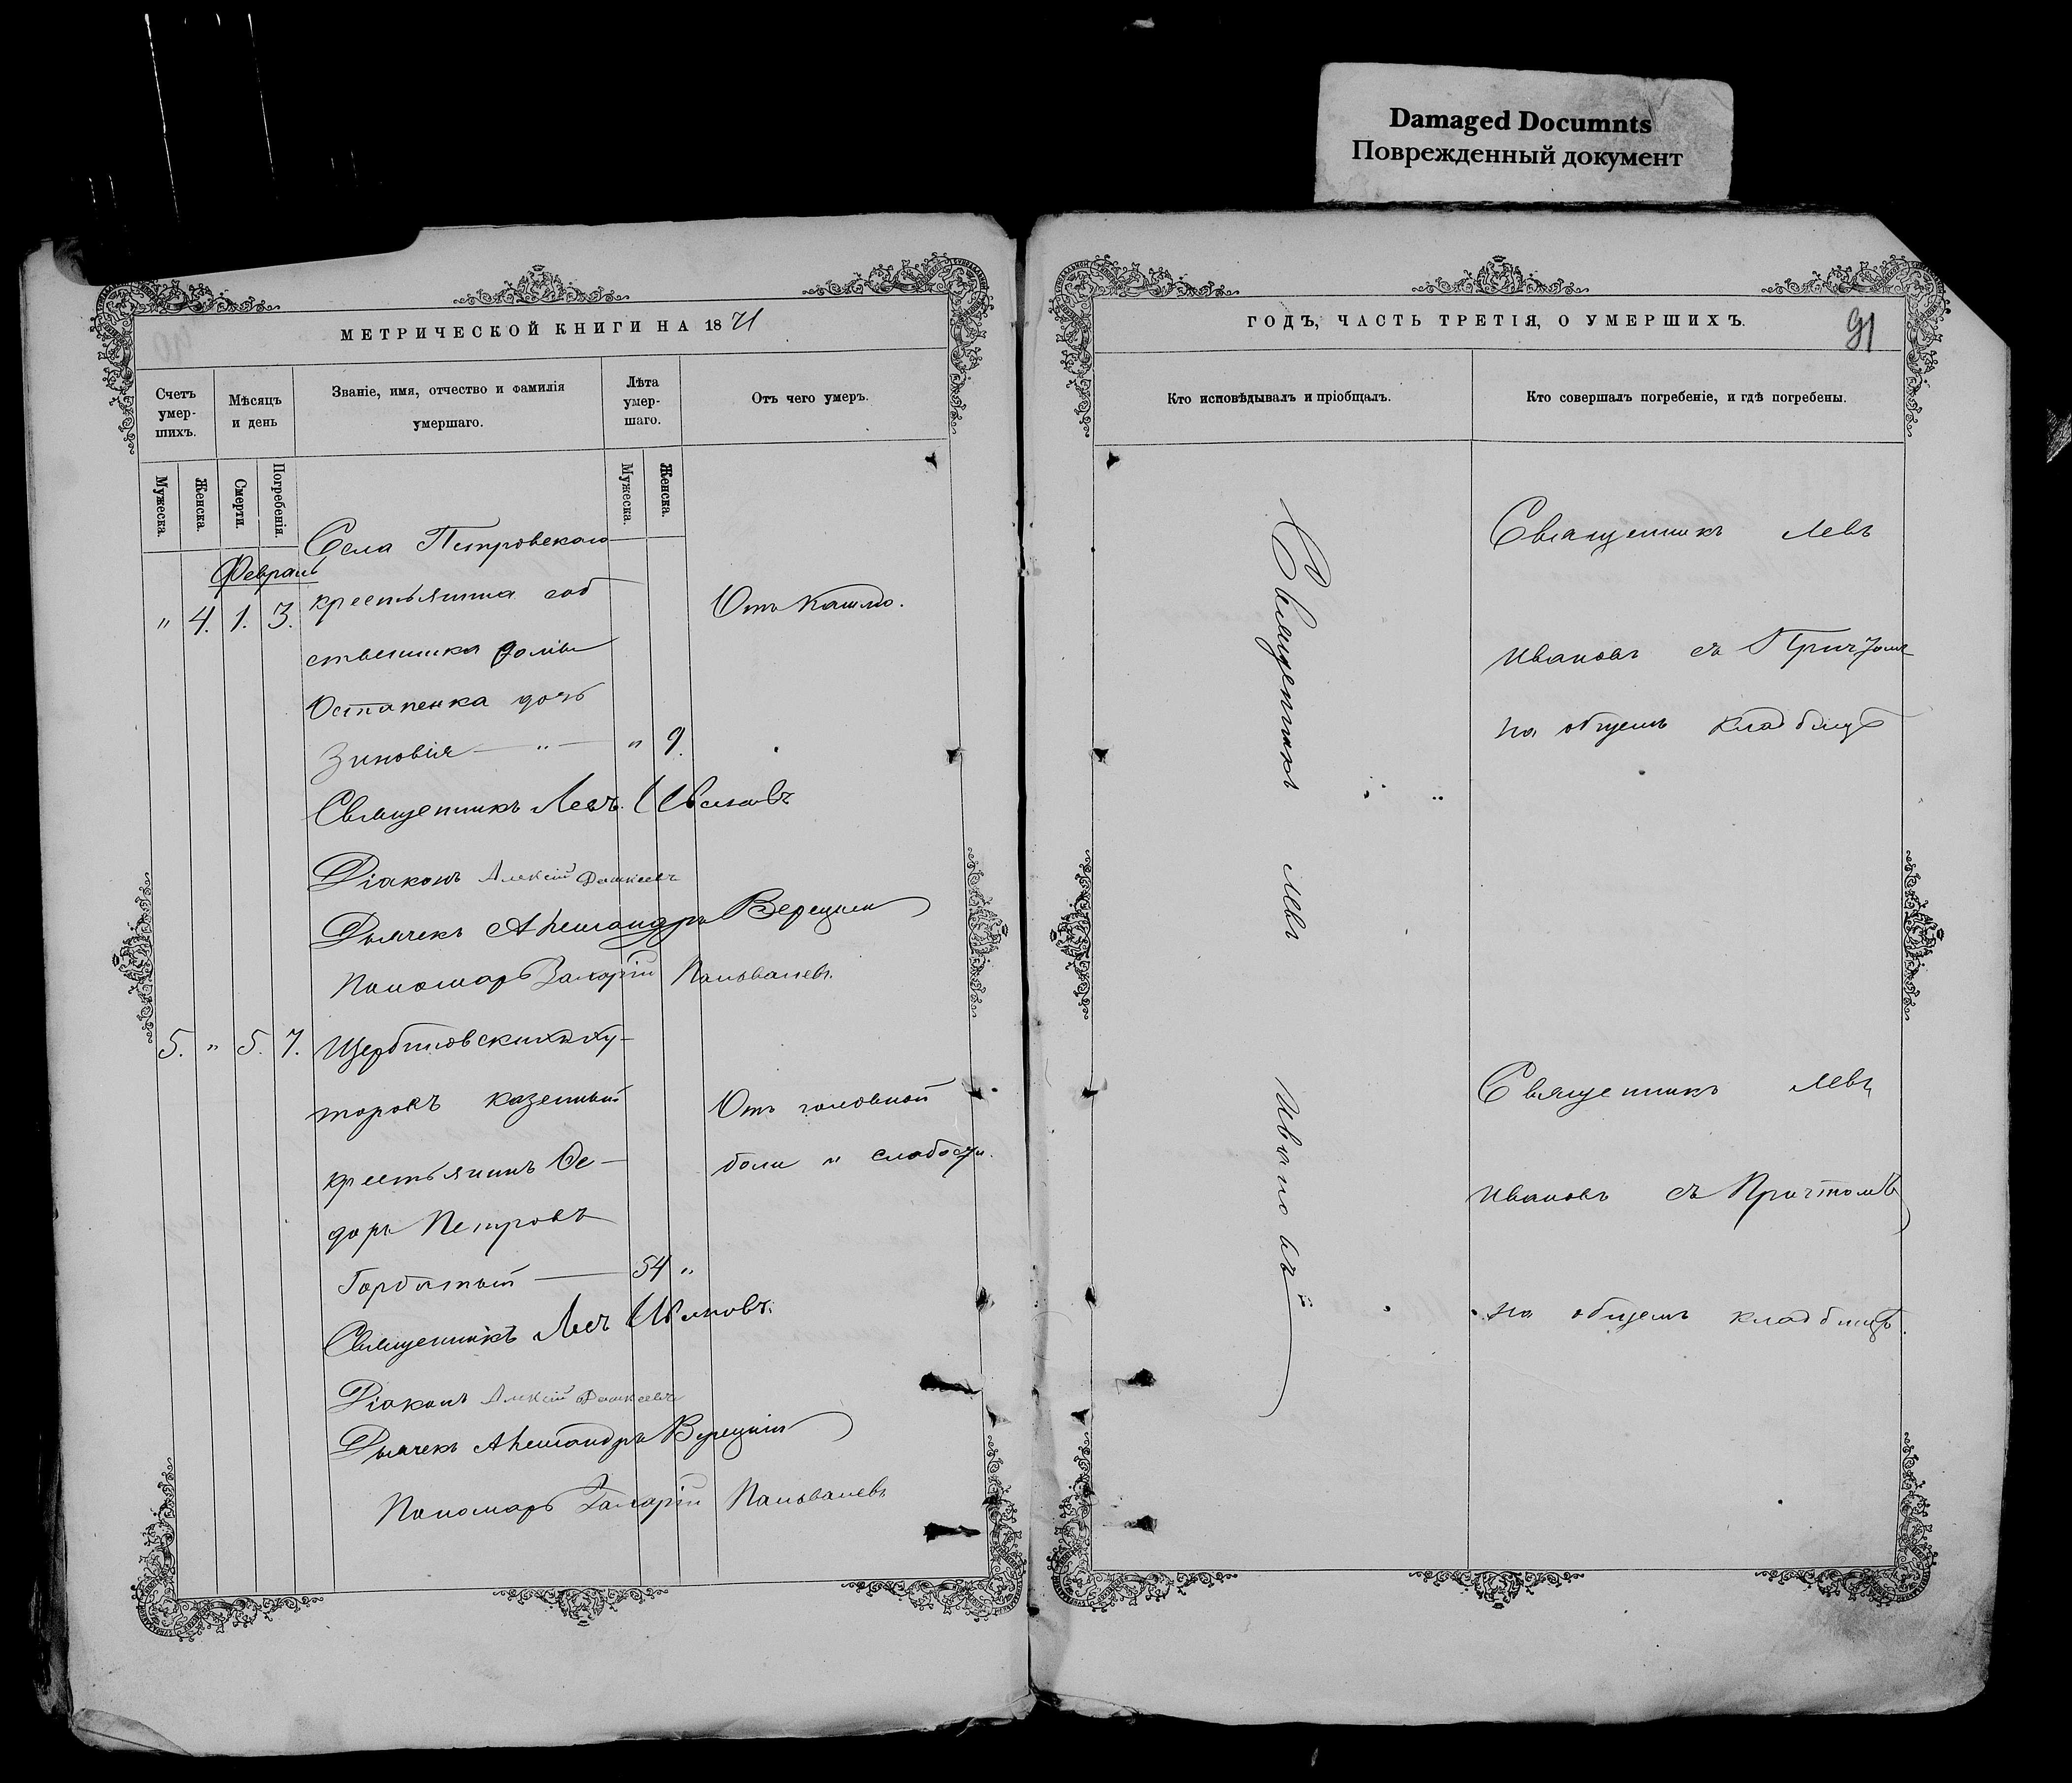 Damaged Documnts
Поврежденный документ
МЕТРИЧЕСКОЙ КНИГИ НА 1871
Счетъ умер-шихъ.
Мѣсяцъ и день
Званіе, имя, отчество и фамилія умершаго.
Лѣта умер-шаго.
Отъ чего умеръ.
Мужеска.
Женска.
Смерти.
Погребенія.
Мужеска.
Женска.
Села Петровскаго
Февраль
" 4. 1. 3. крестьянина соб
Отъ кашлю.
ственника
Остапенка дочь
Зиновія — " — " 9.
Священникъ Левъ Ивановъ
Діаконъ Алексій
Дьячекъ Александръ Верецкій
Пономарь Захарій
5. " 5. 7. Щербиновскихъ ху-
торовъ казенный
Отъ головной
крестьянинъ Ѳе-
боли и слабости.
доръ Петровъ
Горбатый — 54 "
Священникъ Левъ Ивановъ
Діаконъ Алексій
Дьячекъ Александръ Верецкій
Пономарь Захарій
ГОДЪ, ЧАСТЬ ТРЕТІЯ, О УМЕРШИХЪ.
91
Кто исповѣдывалъ и пріобщалъ.
Кто совершалъ погребеніе, и гдѣ погребены.
Священникъ Левъ Ивановъ
Священникъ Левъ
Ивановъ съ Причтомъ
на общемъ кладбищѣ
Священникъ Левъ
Ивановъ съ Причтомъ
на общемъ кладбищѣ.